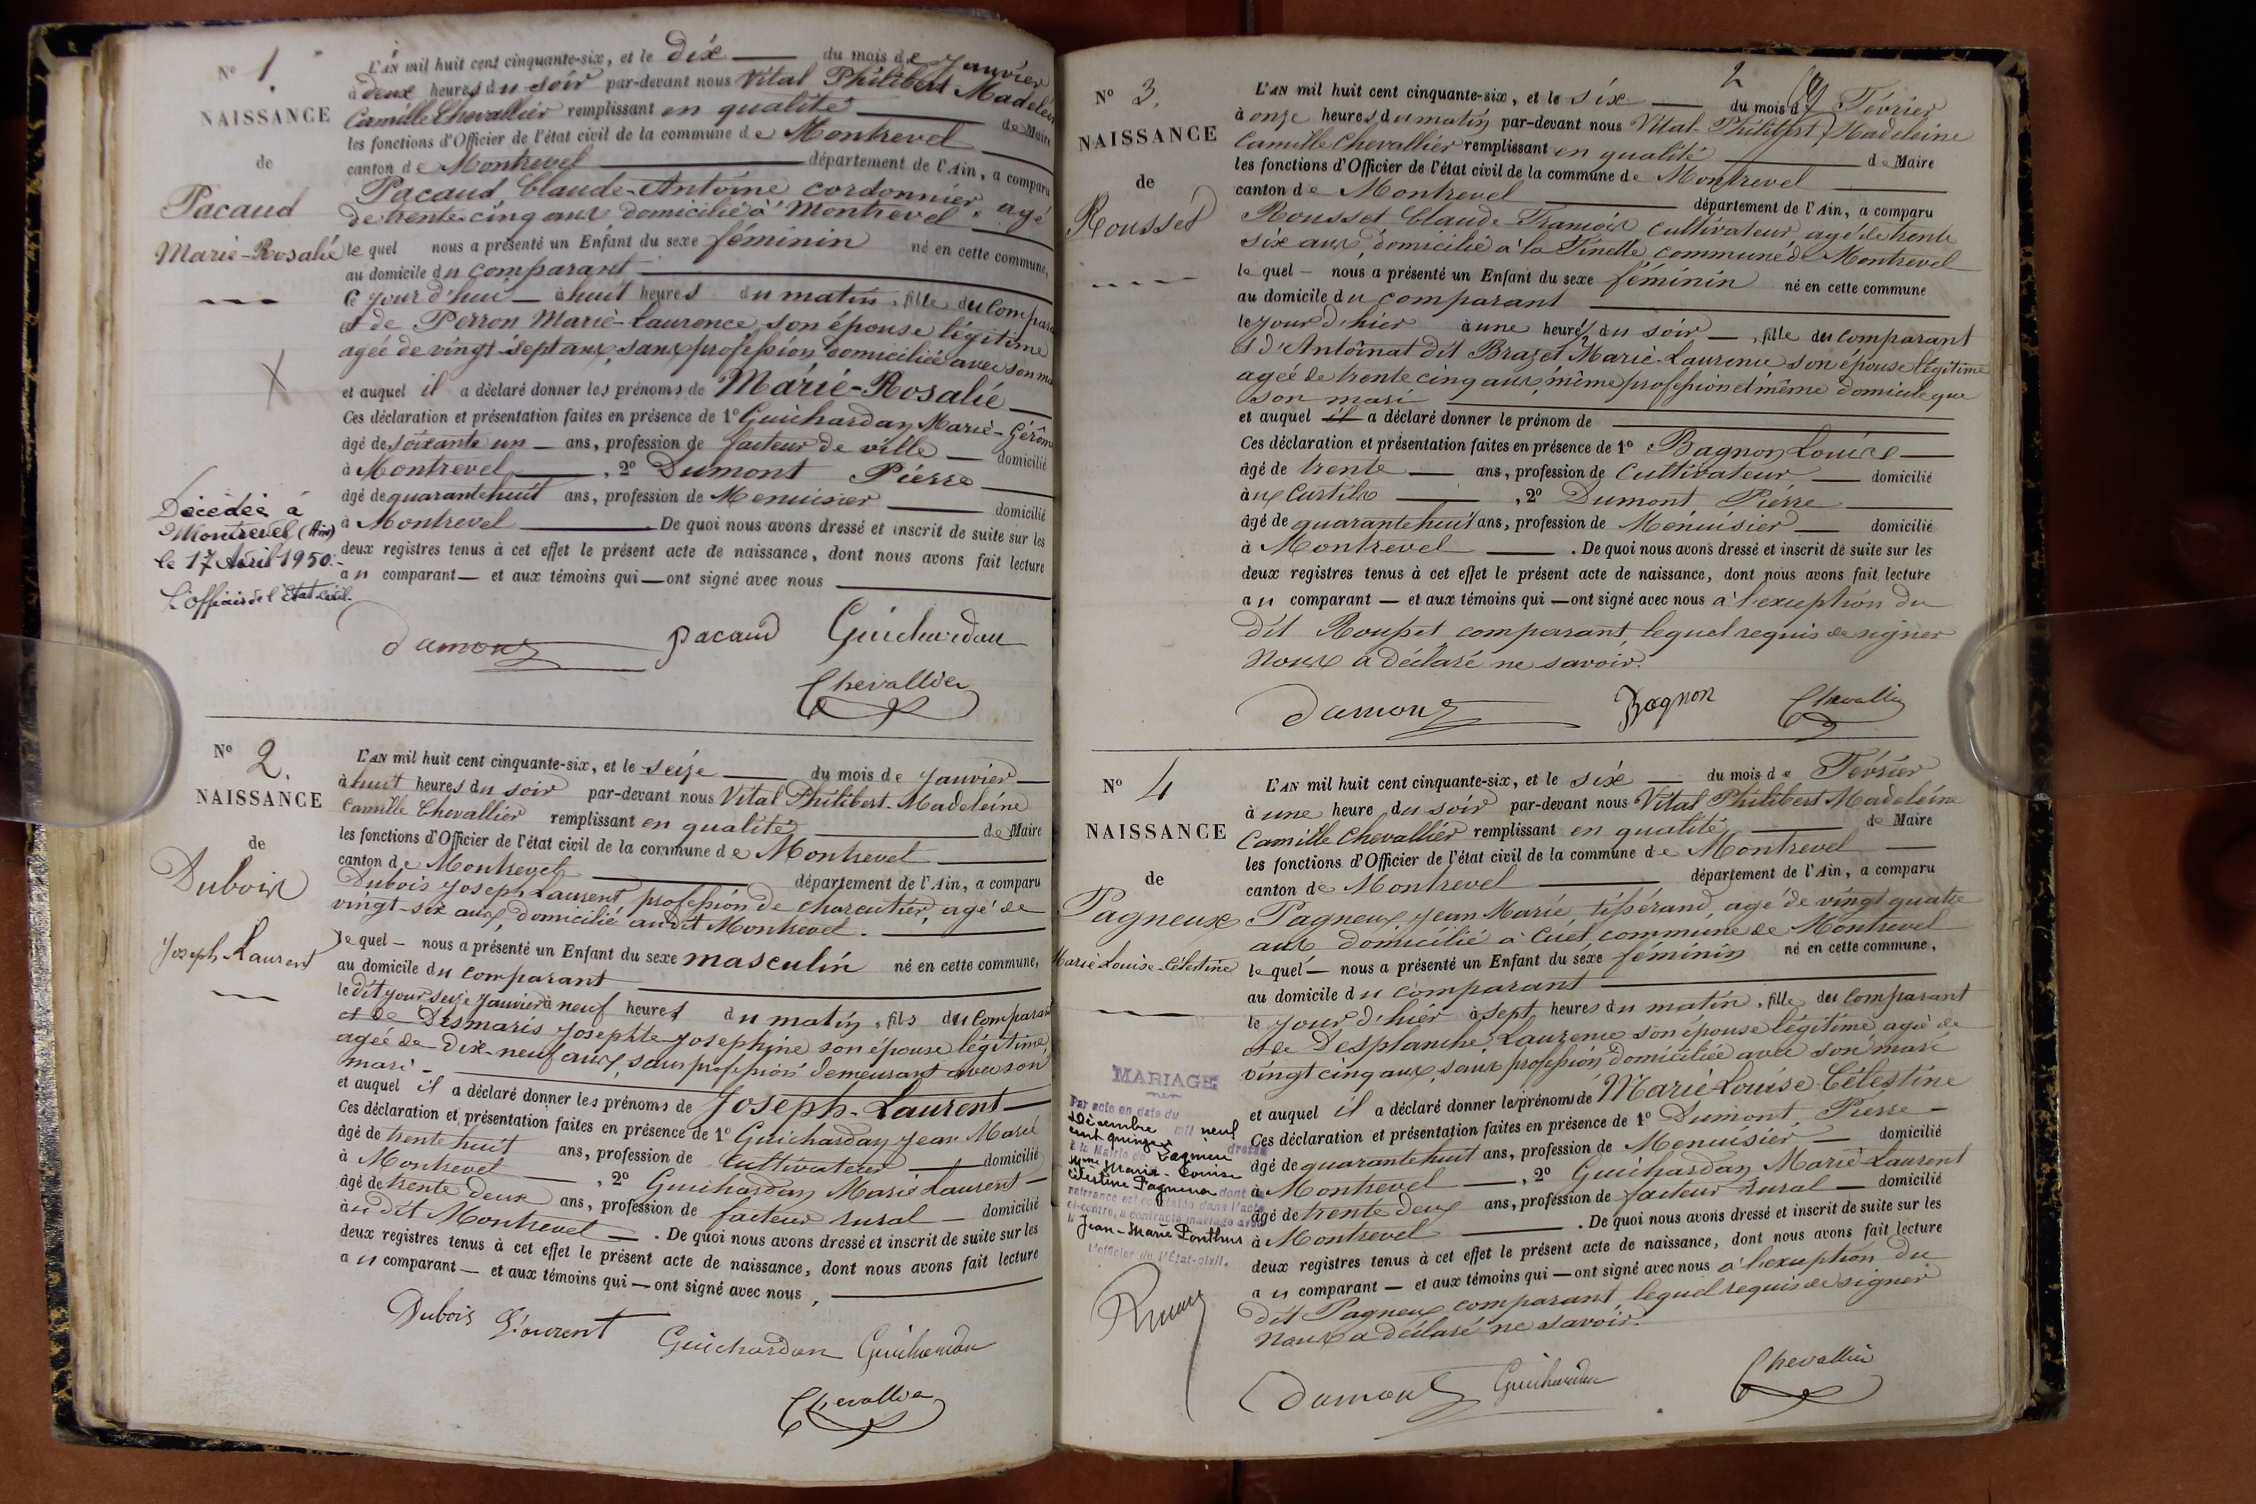 N° 1.
NAISSANCE
de
Pacaud
Marie-Rosalie
L'AN mil huit cent cinquante-six, et le dix du mois de Janvier
à deux heures du soir par-devant nous Vital Philibert Madeleine
Camille Chevallier remplissant en qualité de Maire
les fonctions d'Officier de l'état civil de la commune de Montrevel
canton de Montrevel département de l'Ain, a comparu
Pacaud Claude-Antoine cordonnier agé
de trente-cinq ans domicilié à Montrevel
le quel nous a présenté un Enfant du sexe féminin né en cette commune,
au domicile du comparant
Ce jour d'hui à huit heures du matin, fille du Compara
et de Perron Marie-Laurence son épouse légitime
agée de vingt-sept ans, sans profession domiciliée avec son ma
et auquel il a déclaré donner les prénoms de Marie-Rosalie
Ces déclaration et présentation faites en présence de 1° Guichardan Marie-Gérôm
âgé de soixante un ans, profession de facteur de ville domicilié
à Montrevel, 2° Dumont Pierre
âgé de quarante huit ans, profession de Menuisier domicilié
à Montrevel De quoi nous avons dressé et inscrit de suite sur les
deux registres tenus à cet effet le présent acte de naissance, dont nous avons fait lecture
au comparant et aux témoins qui ont signé avec nous
Décédée à
Montrevel (Ain)
le 17 Avril 1950.-
L'officier de l'Etat-civil.
Dumont Pacaud Guichardan
Chevallier
N° 2.
NAISSANCE
de
Dubois
Joseph Laurent
L'AN mil huit cent cinquante-six, et le seize du mois de Janvier
à huit heures du soir par-devant nous Vital Philibert-Madeleine
Camille Chevallier remplissant en qualité de Maire
les fonctions d'Officier de l'état civil de la commune de Montrevel
canton de Montrevel département de l'Ain, a comparu
Dubois Joseph Laurent profession de charcutier, agé de
vingt-six ans, domicilié au dit Montrevel.
le quel nous a présenté un Enfant du sexe masculin né en cette commune,
au domicile du comparant
le dit jour seize Janvier à neuf heures du matin, fils du Comparant
et de Desmaris Josephte-Josephine son épouse légitime
agée de dix-neuf ans, sans profession demeurant avec son
mari
et auquel il a déclaré donner les prénoms de Joseph-Laurent
Ces déclaration et présentation faites en présence de 1° Guichardan Jean Marie
âgé de trente huit ans, profession de Cultivateur domicilié
à Montrevel, 2° Guichardan Marie Laurent
âgé de trente deux ans, profession de facteur rural domicilié
au dit Montrevel. De quoi nous avons dressé et inscrit de suite sur les
deux registres tenus à cet effet le présent acte de naissance, dont nous avons fait lecture
au comparant et aux témoins qui ont signé avec nous,
Dubois Laurent Guichardan Guichardan
Chevallier
2
N° 3.
NAISSANCE
de
Rousset
L'AN mil huit cent cinquante-six, et le six du mois de Février
à onze heures du matin par-devant nous Vital-Philibert Madeleine
Camille Chevallier remplissant en qualité de Maire
les fonctions d'Officier de l'état civil de la commune de Montrevel
canton de Montrevel département de l'Ain, a comparu
Rousset Claude-François cultivateur agé de trente
six ans, domicilié à la commune de Montrevel
le quel nous a présenté un Enfant du sexe féminin né en cette commune
au domicile du comparant
le jour d'hier à une heure du soir, fille du comparant
et d'Antoinat dit Brazet Marie-Laurence son épouse légitime
agée de trente cinq ans, même profession et même domicile que
son mari
et auquel il a déclaré donner le prénom de
Ces déclaration et présentation faites en présence de 1° Bagnon Louis
âgé de trente ans, profession de Cultivateur domicilié
aux Curtils, 2° Dumont Pierre
âgé de quarante huit ans, profession de Menuisier domicilié
à Montrevel. De quoi nous avons dressé et inscrit de suite sur les
deux registres tenus à cet effet le présent acte de naissance, dont nous avons fait lecture
au comparant et aux témoins qui ont signé avec nous à l'exception du
dit Rousset comparant lequel requis de signer
Nous a déclaré ne savoir.
Dumont Bagnon Chevallier
N° 4
NAISSANCE
de
Pagneux
Marie Louise-Célestine
L'AN mil huit cent cinquante-six, et le six du mois de Février
à une heure du soir par-devant nous Vital Philibert Madeleine
Camille Chevallier remplissant en qualité de Maire
les fonctions d'Officier de l'état civil de la commune de Montrevel
canton de Montrevel département de l'Ain, a comparu
Pagneux Jean Marie, tisserand, agé de vingt quatre
ans domicilié à Cuet commune de Montrevel
le quel nous a présenté un Enfant du sexe féminin né en cette commune,
au domicile du comparant
le jour d'hier à sept heures du matin, fille du Comparant
et de Desplanche Laurence son épouse légitime agée de
vingt cinq ans, sans profession domiciliée avec son mari
et auquel il a déclaré donner les prénoms de Marie Louise-Célestine
Ces déclaration et présentation faites en présence de 1° Dumont Pierre
âgé de quarante huit ans, profession de Menuisier domicilié
à Montrevel, 2° Guichardan Marie-Laurent
âgé de trente deux ans, profession de facteur rural domicilié
à Montrevel. De quoi nous avons dressé et inscrit de suite sur les
deux registres tenus à cet effet le présent acte de naissance, dont nous avons fait lecture
au comparant et aux témoins qui ont signé avec nous à l'exception du
dit Pagneux comparant, lequel requis de signer
Nous a déclaré ne savoir.
MARIAGE
Par acte en date du
Décembre mil neuf
cent quinze dressé
à la Mairie de
Mme Marie-Louise
Célestine Pagneux dont la
naissance est constatée dans l'acte
ci-contre, a contracté mariage avec
Jean-Marie Ponthus
L'officier de l'Etat-civil.
Dumont Guichardan Chevallier